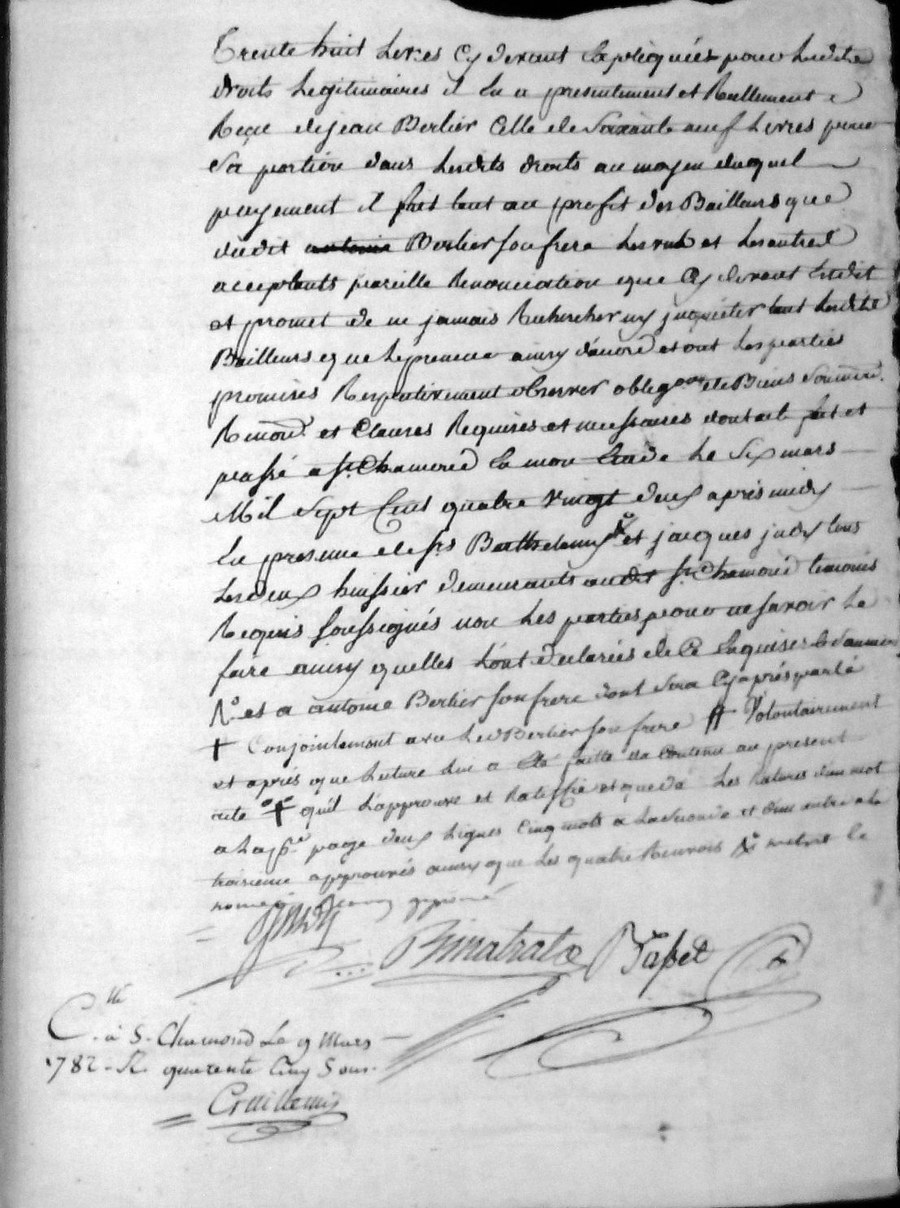 Trente huit Livres Cy devant Expliquées pour lesdits
droits Legitimaires il En a presentement et Reellement
Reçu de jean Berlier Celle de Soixante neuf Livres pour
Sa portion dans Lesdits droits au moyen duquel
payement il fait tant au profit des Bailleurs que
dudit antoine Berlier son frere Les uns et Les autres
acceptants pareille Renonciation que Cy devant Endit
et promet de ne jamais Rechercher ny jnquieter tant Lesdits
Bailleurs que Le preneur ainsy d'accord et ont Les parties
promises Respectivement observer obligaon de Biens Soumions
Renons et Clauses Requises et necessaires dont acte fait et
passé a St Chamond Le Six mars
Mil Sept Cent quatre vingt deux après midy
En presence de srs Barthelemy et jacques judy tous
Les deux huissier demeurants audit St Chamond temoins
Requis Soussignés non Les parties pour ne savoir Le
faire ainsy quelles L'ont declarées de Ce Enquises
et a antoine Berlier son frere dont Sera Cy après parlé
+ Conjointement avec Led Berlier son frere # Volontairement
et après que Lecture Luy a Eté faitte du Contenu au present
acte qu'il L'approuve et Ratiffie et que de Les Ratures d'un mot
a La pre page deux Lignes Cinq mots a La Seconde et d'un autre a La
troisieme approuvés ainsy que Les quatre Renvois
approuvé
Finatrat
Tapet
Clle
à S. Chamond Le 9 Mars
1782 - R. quarente Cinq Sous.